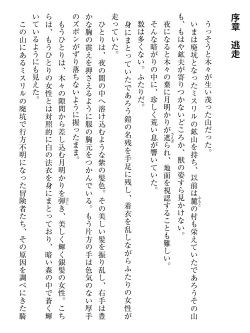 序章　逃走
うっそうと木々が生い茂った山だった。
いまは廃坑となったミスリルの鉱山を持ち、以前は麓の村も栄えていたであろうその山
も、もはや鉱夫が寄りつかないどころか、獣の姿すら見かけない。
夜になると木々の葉に月明かりが遮られ、地面を視認することも難しい。
そんな暗がりの中に、珍しく荒い息が響いていた。
数は多くない。ふたりだ。
身にまとっていたであろう鎧の名残を手足に残し、着衣を乱しながらふたりの女性が
走っていた。
ひとりは、夜の闇の中へ溶け込むような紫の髪色。その美しい髪を振り乱し、右手は豊
かな胸の震えを押さえるように服の胸元をつかんでいる。もう片方の手は色気のない厚手
のズボンがずり落ちないように握ったまま。
もうひとりは、木々の隙間から差し込む月明かりを弾き、美しく輝く銀髪の女性。こち
らは、もうひとりの女性とは対照的に白の法衣を身にまとっており、暗い森の中で蒼く輝
いているようにも見えた。
この山にあるミスリルの廃坑で行方不明になった冒険者たち、その原因を調べにきた騎